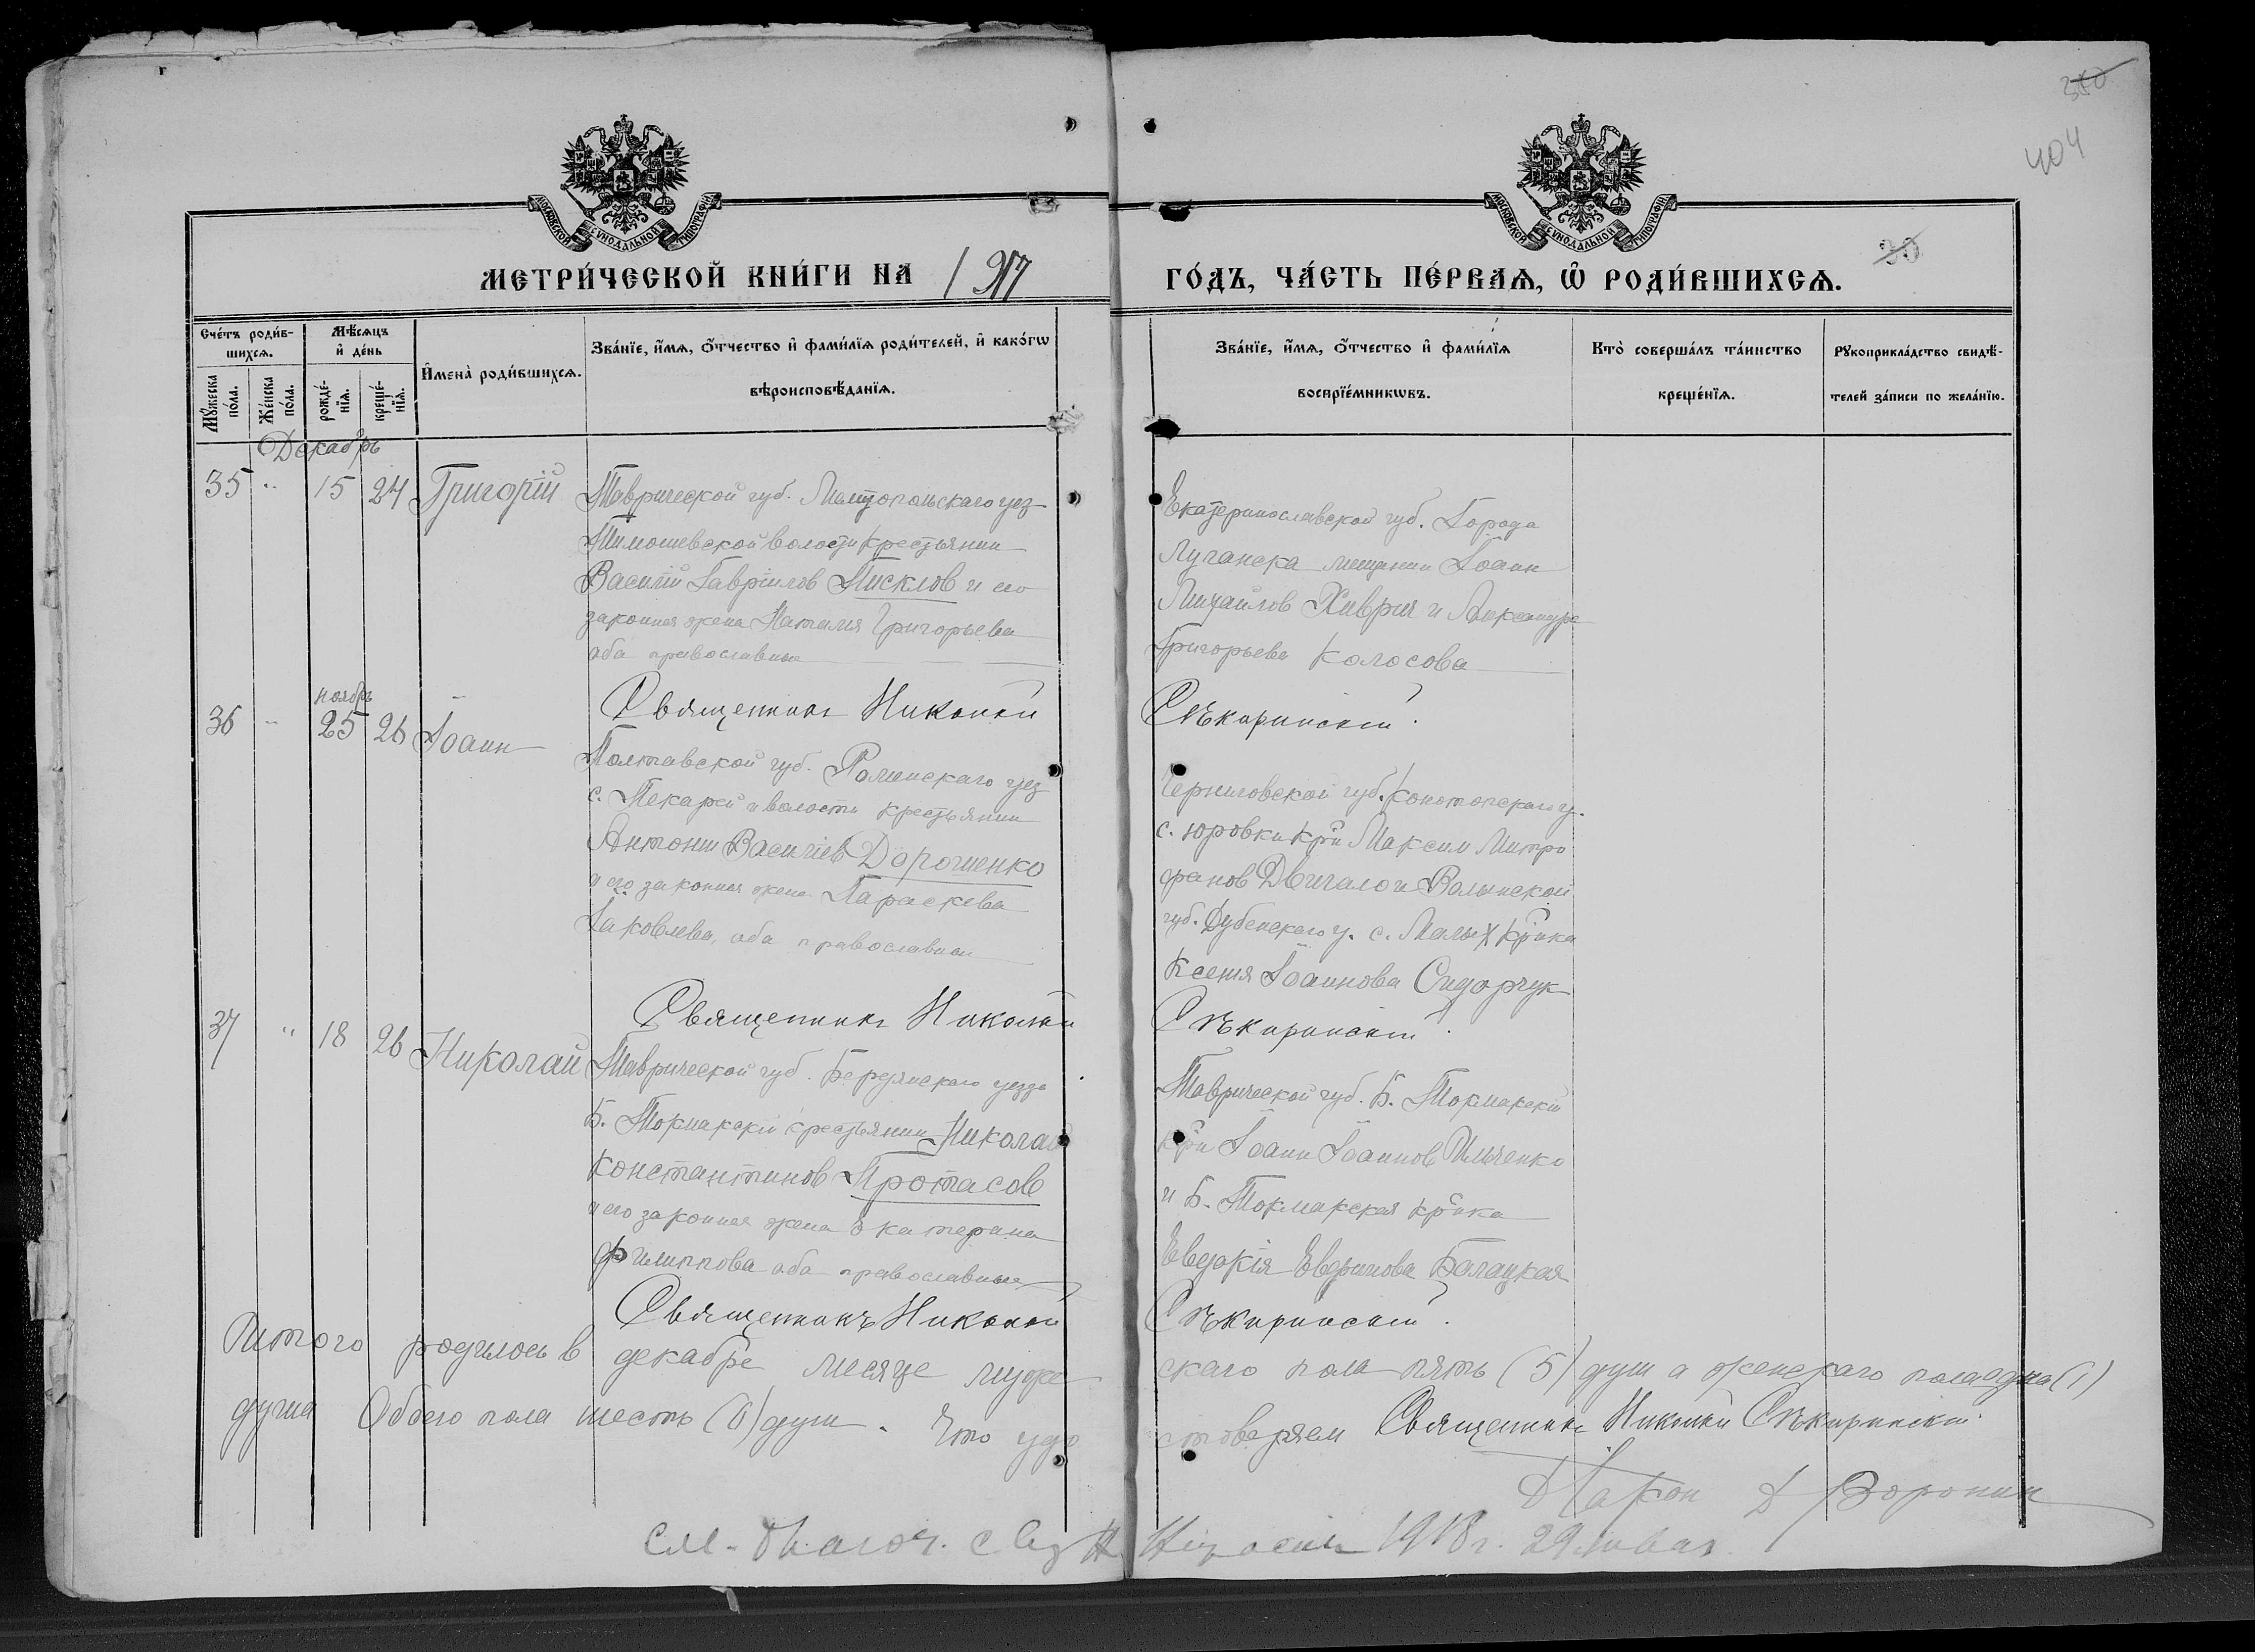 380
404
30
МОСКОВСКОЙ СѴНОДАЛЬНОЙ ТИПОГРАФІИ
МОСКОВСКОЙ СѴНОДАЛЬНОЙ ТИПОГРАФІИ
МЕТРИ́ЧЕСКОЙ КНИ́ГИ НА 1917 ГО́ДЪ, ЧА́СТЬ ПЕ́РВАѦ, Ѽ РОДИ́ВШИХСѦ.
Сче́тъ роди́в-
шихсѧ.
Мꙋ́жеска по́ла.
Же́нска по́ла.
Мѣ́сѧцъ
и҆ де́нь
рожде́-
нїѧ.
креще́-
нїѧ.
И҆мена̀ роди́вшихсѧ.
Зва́нїе, и҆́мѧ, ѻ҆́тчество и҆ фами́лїѧ роди́телей, и҆ како́гѡ
вѣроисповѣ́данїѧ.
Зва́нїе, и҆́мѧ, ѻ҆́тчество и҆ фами́лїѧ
воспрїе́мникѡвъ.
Кто̀ соверша́лъ та́инство
креще́нїѧ.
Рꙋкоприкла́дство свидѣ́-
телей за́писи по жела́нїю.
Декабрь
35 " 15 24 Григорій
Таврической губ. Мелитопольскаго уез
Тимошевской волости крестьянин
Василій Гавріилов Писклов и его
законная жена Наталия Григорьева
оба православные
Екатеринославской губ. Города
Луганска мещанин Іоанн
Михайлов Хиврич и Александра
Григорьева Колосова
Священникъ Николай Сѣкиринскій.
ноябрь
36 " 25 26 Іоанн
Полтавской губ. Роменскаго уез
с. Пекарей и волости крестьянин
Антоний Василіев Дорошенко
и его законная жена Параскева
Іаковлева, оба православные
Черниговской губ. Конотопскаго у.
с. Юровки кр҃н Максим Митро
фанов Двигало и Волынской
губ. Дубенскаго у. с. Малых кр҃нка
Ксения Іоаннова Сидорчук
Священникъ Николай Сѣкиринскій.
37 " 18 26 Николай
Таврической губ. Бердянскаго уезда
Б. Токмакский крестьянин Николай
Константинов Протасов
и его законная жена Екатерина
Филиппова оба православные
Таврической губ. Б. Токмакский
кр҃н Іоанн Іоаннов Ильченко
и Б. Токмакская кр҃нка
Евдокія Евдокимова Балацкая
Священникъ Николай Сѣкиринскій.
Итого родилось в декабре месяце муже
скаго пола пять (5) душ а женскаго пола одна (1)
душа Обоего пола шесть (6) душ. Что удо
стоверяем Священникъ Николай Сѣкиринскій.
Диакон Д Воронин
1918 г. 29